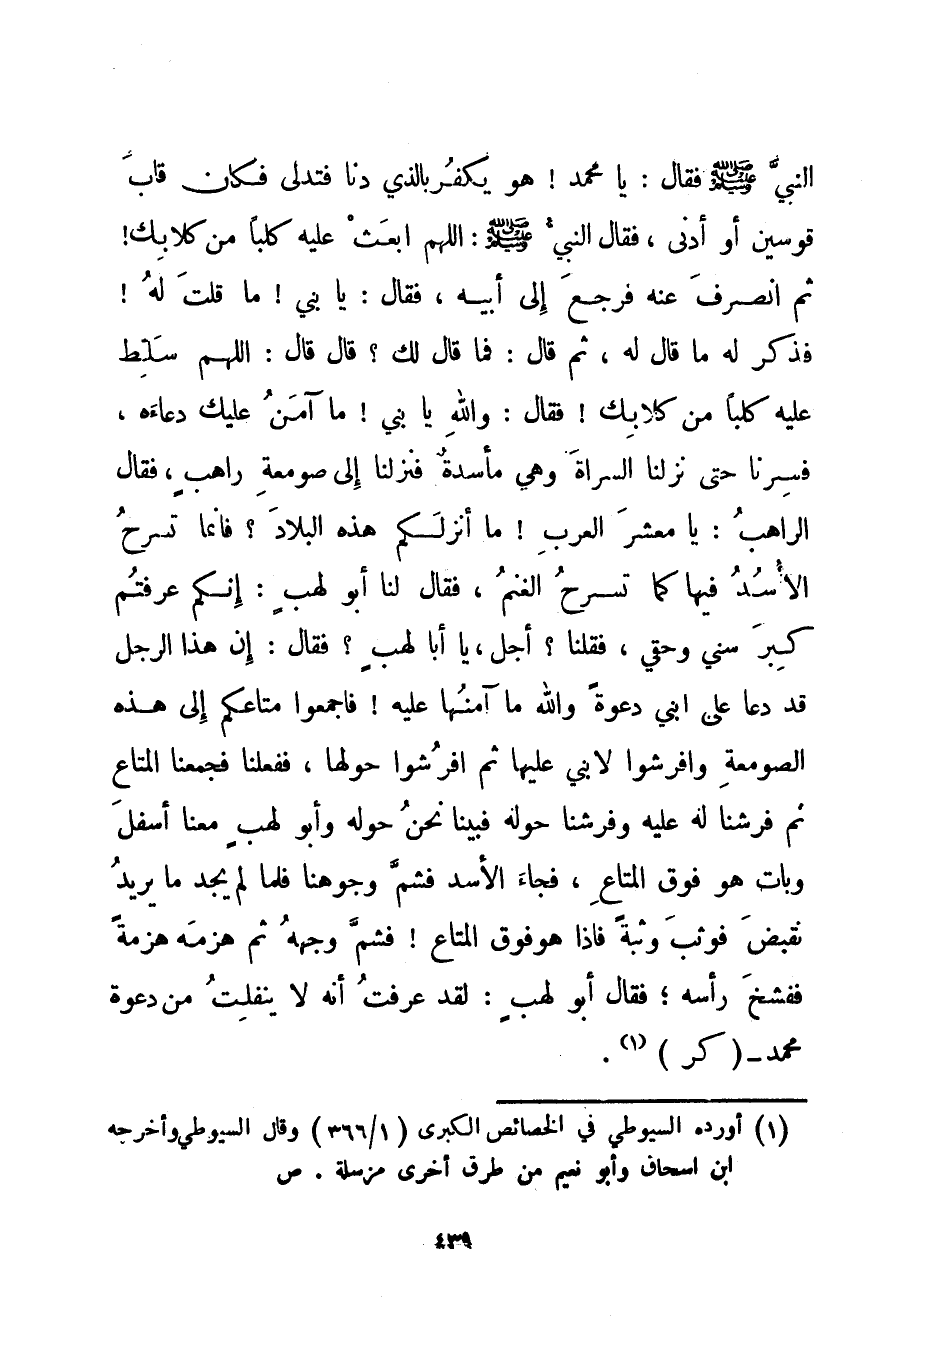 النبيَّ ﷺ فقال : يا محمد ! هو يكفُر بالذي دنا فتدلى فكان قابَ
قوسين أو أدنى ، فقال النبيُ ﷺ : اللهم ابعَثْ عليه كلباً من كلابِك!
ثم انصرفَ عنه فرجعَ إلى أبيه ، فقال : يا بني ! ما قلتَ لهُ !
فذكر له ما قال له ، ثم قال : فما قال لك ؟ قال قال : اللهم سَلِّط
عليه كلباً من كلابِك ! فقال : واللهِ يا بني ! ما آمَنُ عليك دعاءَه ،
فسِرنا حتى نزلنا السراةَ وهي مأسدةٌ فنزلنا إلى صومعةِ راهبٍ ، فقال
الراهبُ : يا معشرَ العربِ ! ما أنزلَكم هذه البلادَ ؟ فانما تسرحُ
الأُسُدُ فيها كما تسرحُ الغنمُ ، فقال لنا أبو لهبٍ : إنكم عرفتُم
كِبرَ سني وحقي ، فقلنا ؟ أجل ، يا أبا لهبٍ ؟ فقال : إن هذا الرجل
قد دعا على ابني دعوةً والله ما آمنُها عليه ! فاجمعوا متاعكم إلى هذه
الصومعةِ وافرشوا لابني عليها ثم افرُشوا حولها ، ففعلنا فجمعنا المتاع
ثم فرشنا له عليه وفرشنا حوله فبينا نحنُ حوله وأبو لهبٍ معنا أسفلَ
وبات هو فوق المتاعِ ، فجاءَ الأسد فشمَّ وجوهنا فلما لم يجد ما يريدُ
تقبضَ فوثبَ وثبةً فاذا هو فوق المتاع ! فشمَّ وجههُ ثم هزمَه هزمةً
ففشخَ رأسه ؛ فقال أبو لهبٍ : لقد عرفتُ أنه لا ينفلِتُ من دعوة
محمد ـ ( كر ) (١) .
(١) أورده السيوطي في الخصائص الكبرى ( ١/٣٦٦ ) وقال السيوطي وأخرجه
ابن اسحاق وأبو نعيم من طرق أخرى مرسلة . ص
٤٣٩